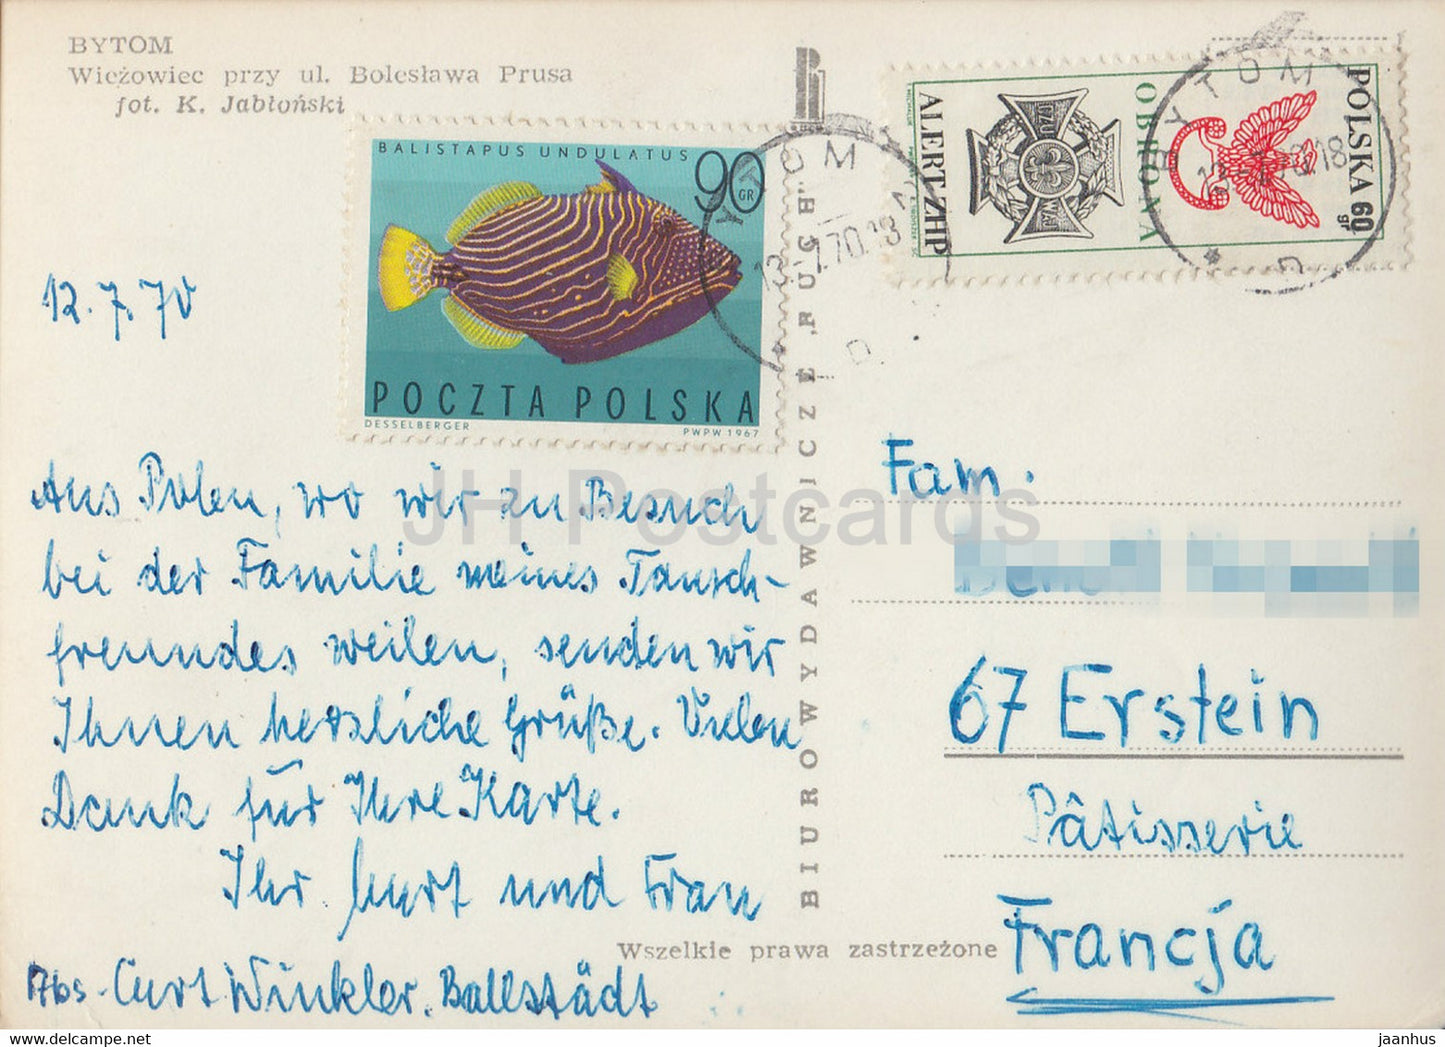 BYTOM
Wieżowiec przy ul. Bolesława Prusa
fot. K. Jabłoński
BALISTAPUS UNDULATUS 90 GR
POCZTA POLSKA
DESSELBERGER PWPW 1967
POLSKA 60 gr
OBRONA
ALERT ZHP
BYTOM
7.70.18
BYTOM
12.7.70
Aus Polen, wo wir zu Besuch
bei der Familie meines Tausch-
freundes weilen, senden wir
Ihnen herzliche Grüße. Vielen
Dank für Ihre Karte.
Ihr Curt und Frau
Abs. Curt Winkler. Ballstädt
BIURO WYDAWNICZE RUCH
Wszelkie prawa zastrzeżone
Fam.
67 Erstein
Pâtisserie
Francja
JH Postcards
delcampe.net
jaanhus